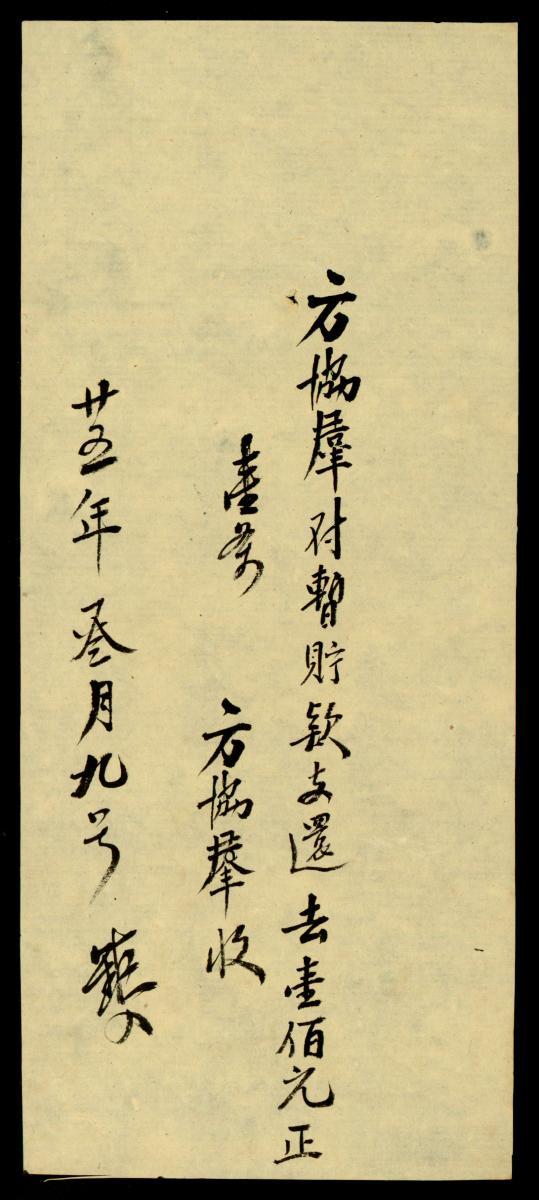 方協羣对暫貯款支還去壹佰元正
壹
方協羣收
廿五年叁月九号